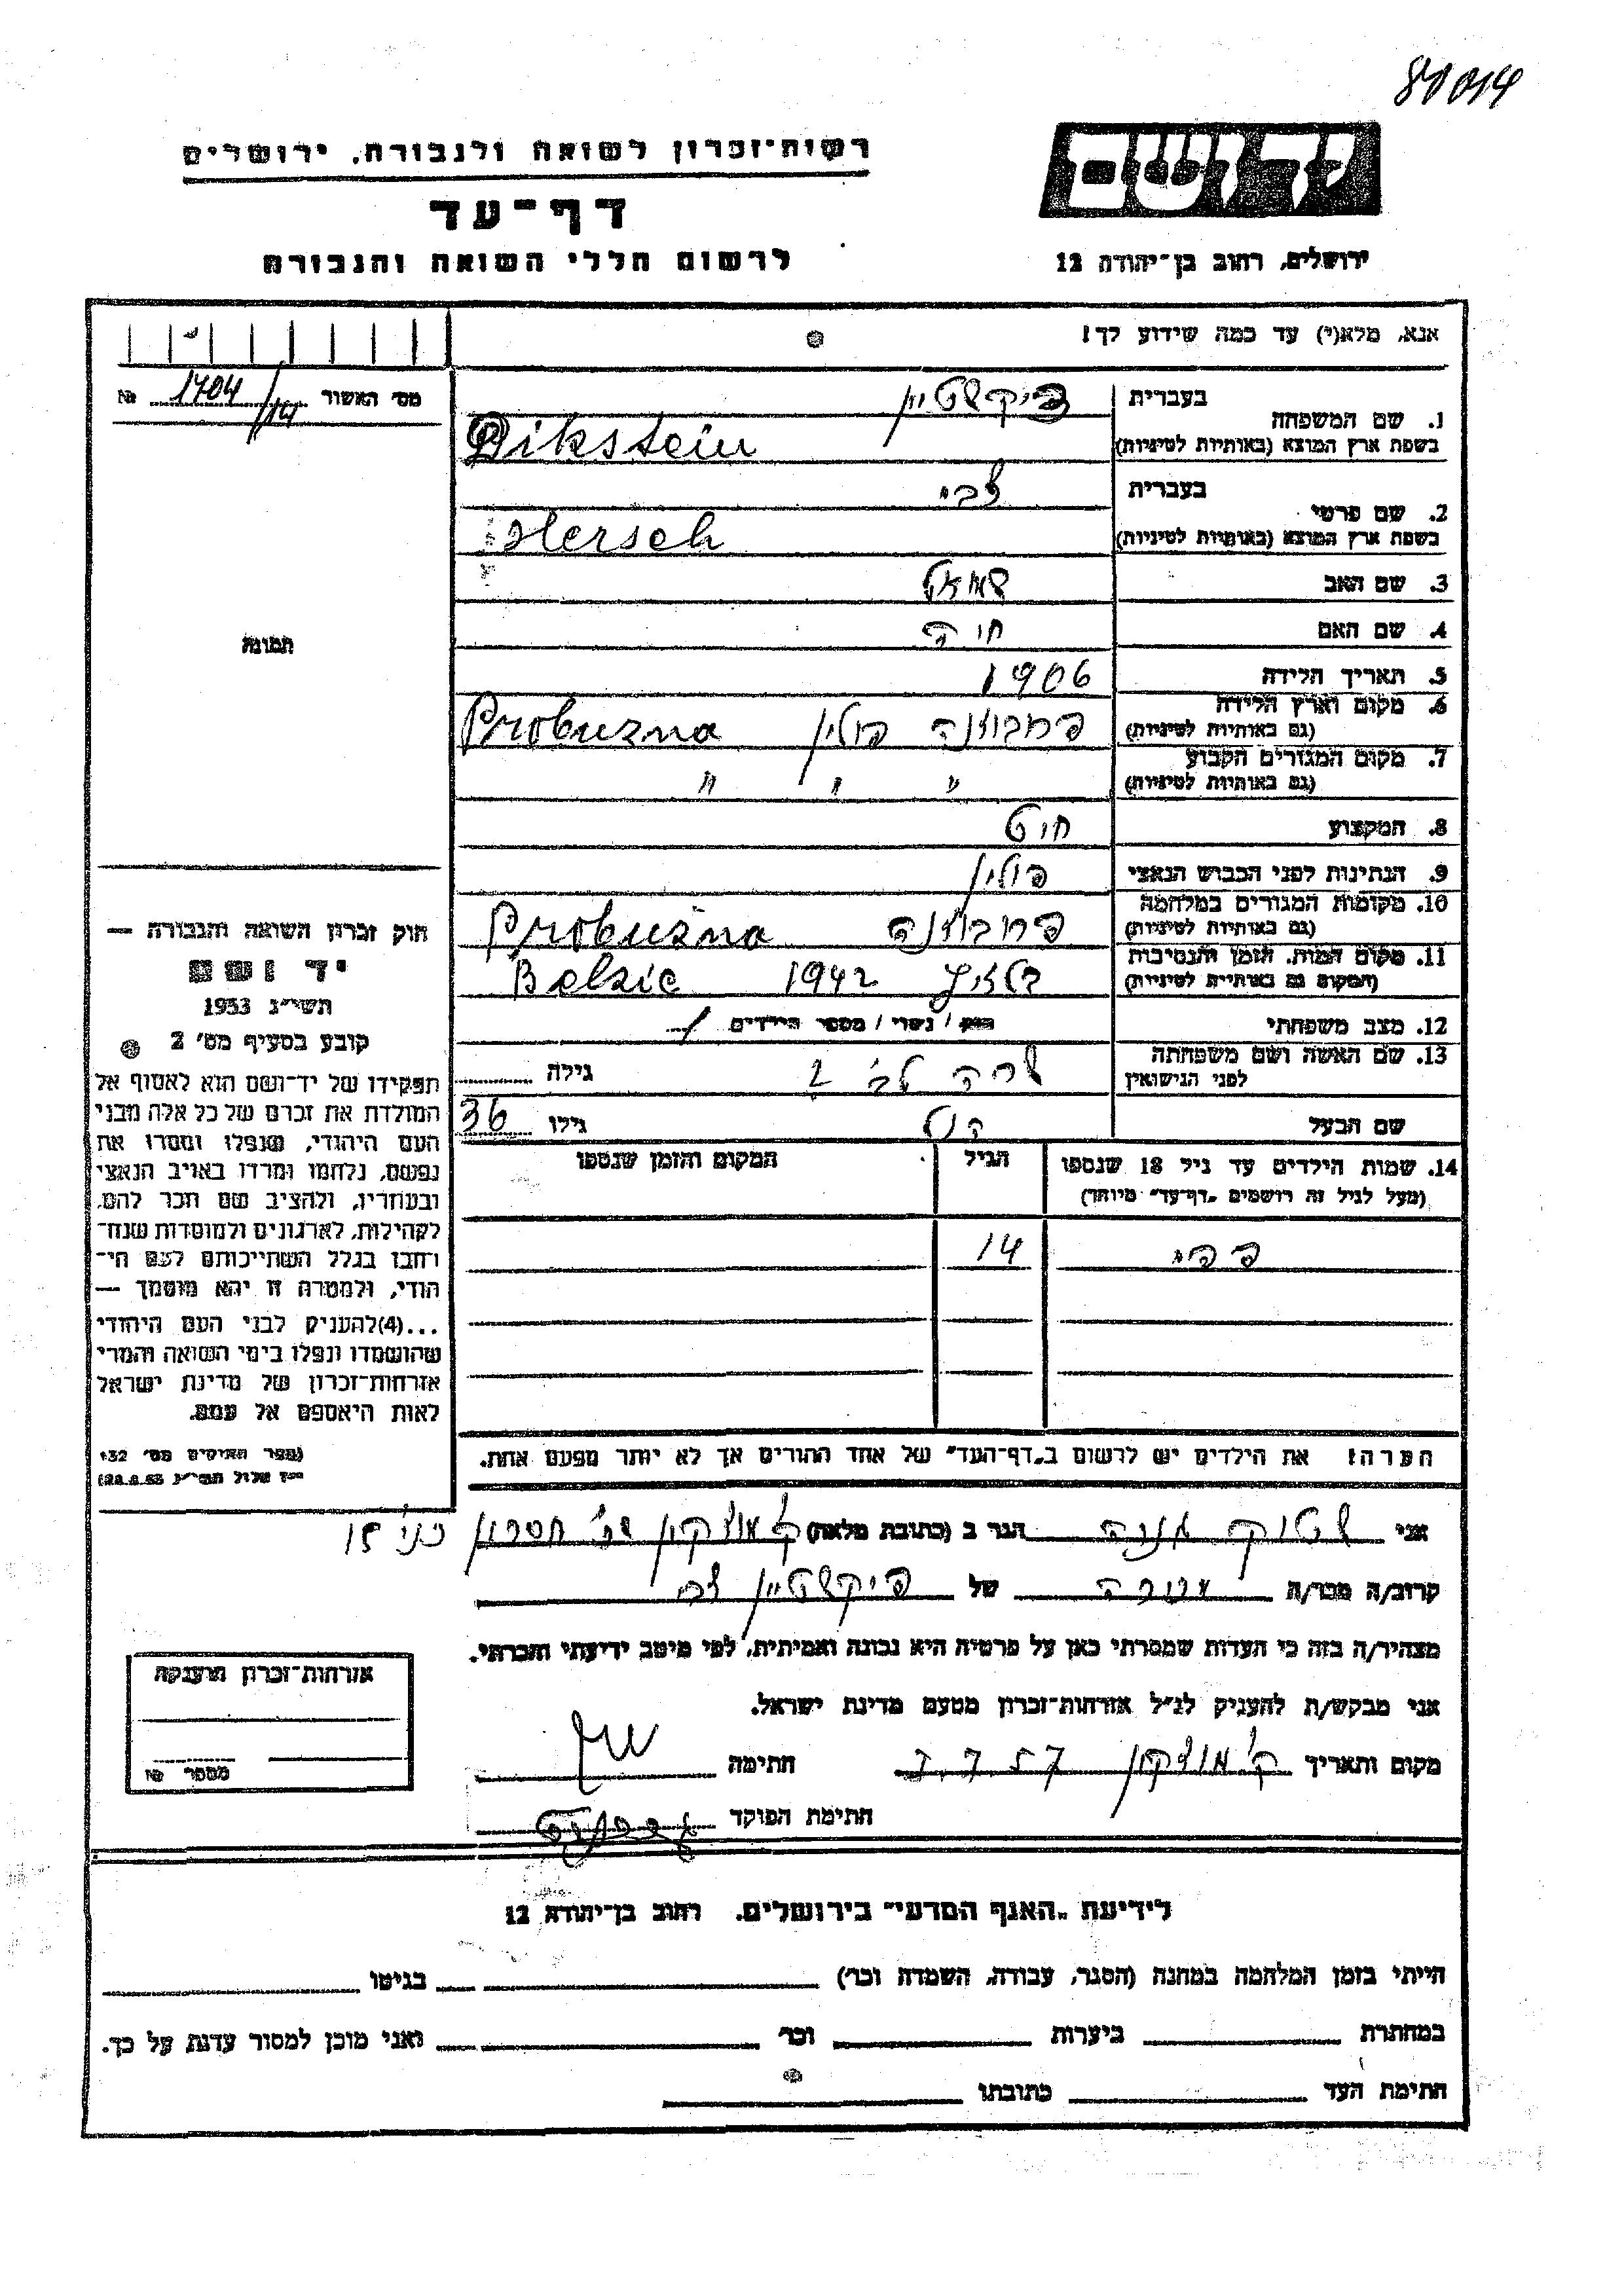 84014
רשות-זכרון לשואה ולגבורה, ירושלים
יד ושם
דף-עד
לרשום חללי השואה והגבורה
ירושלים, רחוב בן-יהודה 12
אנא, מלא(י) עד כמה שידוע לך!
מס' האשור 1704/14 №
1. שם המשפחה
בעברית פיקשטיין
בשפת ארץ המוצא (באותיות לטיניות) Bikstein
2. שם פרטי
בעברית צבי
בשפת ארץ המוצא (באותיות לטיניות) Hersch
3. שם האב שמואל
4. שם האם חיה
תמונה
5. תאריך הלידה 1906
6. מקום וארץ הלידה (גם באותיות לטיניות) פרבוזנה פולין Probuzna
7. מקום המגורים הקבוע (גם באותיות לטיניות) " " "
8. המקצוע חיט
9. הנתינות לפני הכבוש הנאצי פולין
10. מקומות המגורים במלחמה (גם באותיות לטיניות) פרבוזנה Probużna
11. מקום המות, הזמן והנסיבות (המקום גם באותיות לטיניות) בלזיץ 1942 Belzic
12. מצב משפחתי רווק / נשוי / מספר הילדים 1
13. שם האשה ושם משפחתה לפני הנישואין שרה לבי ? גילה
שם הבעל הנ"ל גילו 36
14. שמות הילדים עד גיל 18 שנספו (מעל לגיל זה רושמים "דף-עד" מיוחד) הגיל המקום והזמן שנספו
פפי 14
הערה: את הילדים יש לרשום ב"דף-העד" של אחד ההורים אך לא יותר מפעם אחת.
חוק זכרון השואה והגבורה —
יד ושם
תשי"ג 1953
קובע בסעיף מס' 2
תפקידו של יד-ושם הוא לאסוף אל
המולדת את זכרם של כל אלה מבני
העם היהודי, שנפלו ומסרו את
נפשם, נלחמו ומרדו באויב הנאצי
ובעוזריו, ולהציב שם וזכר להם,
לקהילות, לארגונים ולמוסדות שנח-
רבו בגלל השתייכותם לעם הי-
הודי, ולמטרה זו יהא מוסמך —
...(4) להעניק לבני העם היהודי
שהושמדו ונפלו בימי השואה והמרי
אזרחות-זכרון של מדינת ישראל
לאות היאספם אל עמם.
(ספר החוקים מס' 132
י"ז אלול תשי"ג 28.8.53)
אני שטוק חנה הגר ב (כתובת מלאה) ק. מוצקין שכ' חסכון בנין 15
קרוב/ה מכר/ה של פיקשטיין צבי
מצהיר/ה בזה כי העדות שמסרתי כאן על פרטיה היא נכונה ואמיתית, לפי מיטב ידיעתי והכרתי.
אני מבקש/ת להעניק לנ"ל אזרחות-זכרון מטעם מדינת ישראל.
מקום ותאריך ק. מוצקין 7.7.57 חתימה
חתימת הפוקד
אזרחות-זכרון הוענקה
מספר №
לידיעת "האגף המדעי" בירושלים, רחוב בן-יהודה 12
הייתי בזמן המלחמה במחנה (הסגר, עבודה, השמדה וכו') בגיטו
במחתרת ביערות וכו' ואני מוכן למסור עדות על כך.
חתימת העד כתובתו